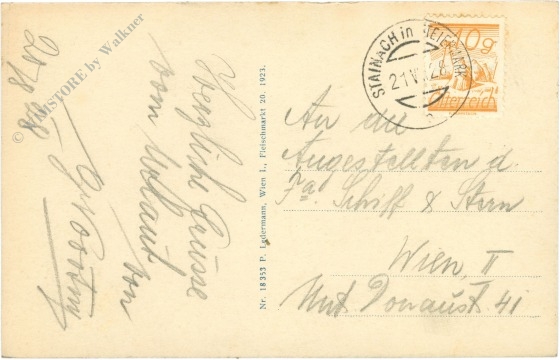 © HAMSTORE by Walkner
Herzliche Grüsse
vom Urlaub
von
Nr. 18353 P. Ledermann, Wien I., Fleischmarkt 20. 1923.
STAINACH in STEIERMARK
10g
Österreich
An die
Angestellten d.
Fa. Schiff & Stern
Wien, II
Unt Donaust 41